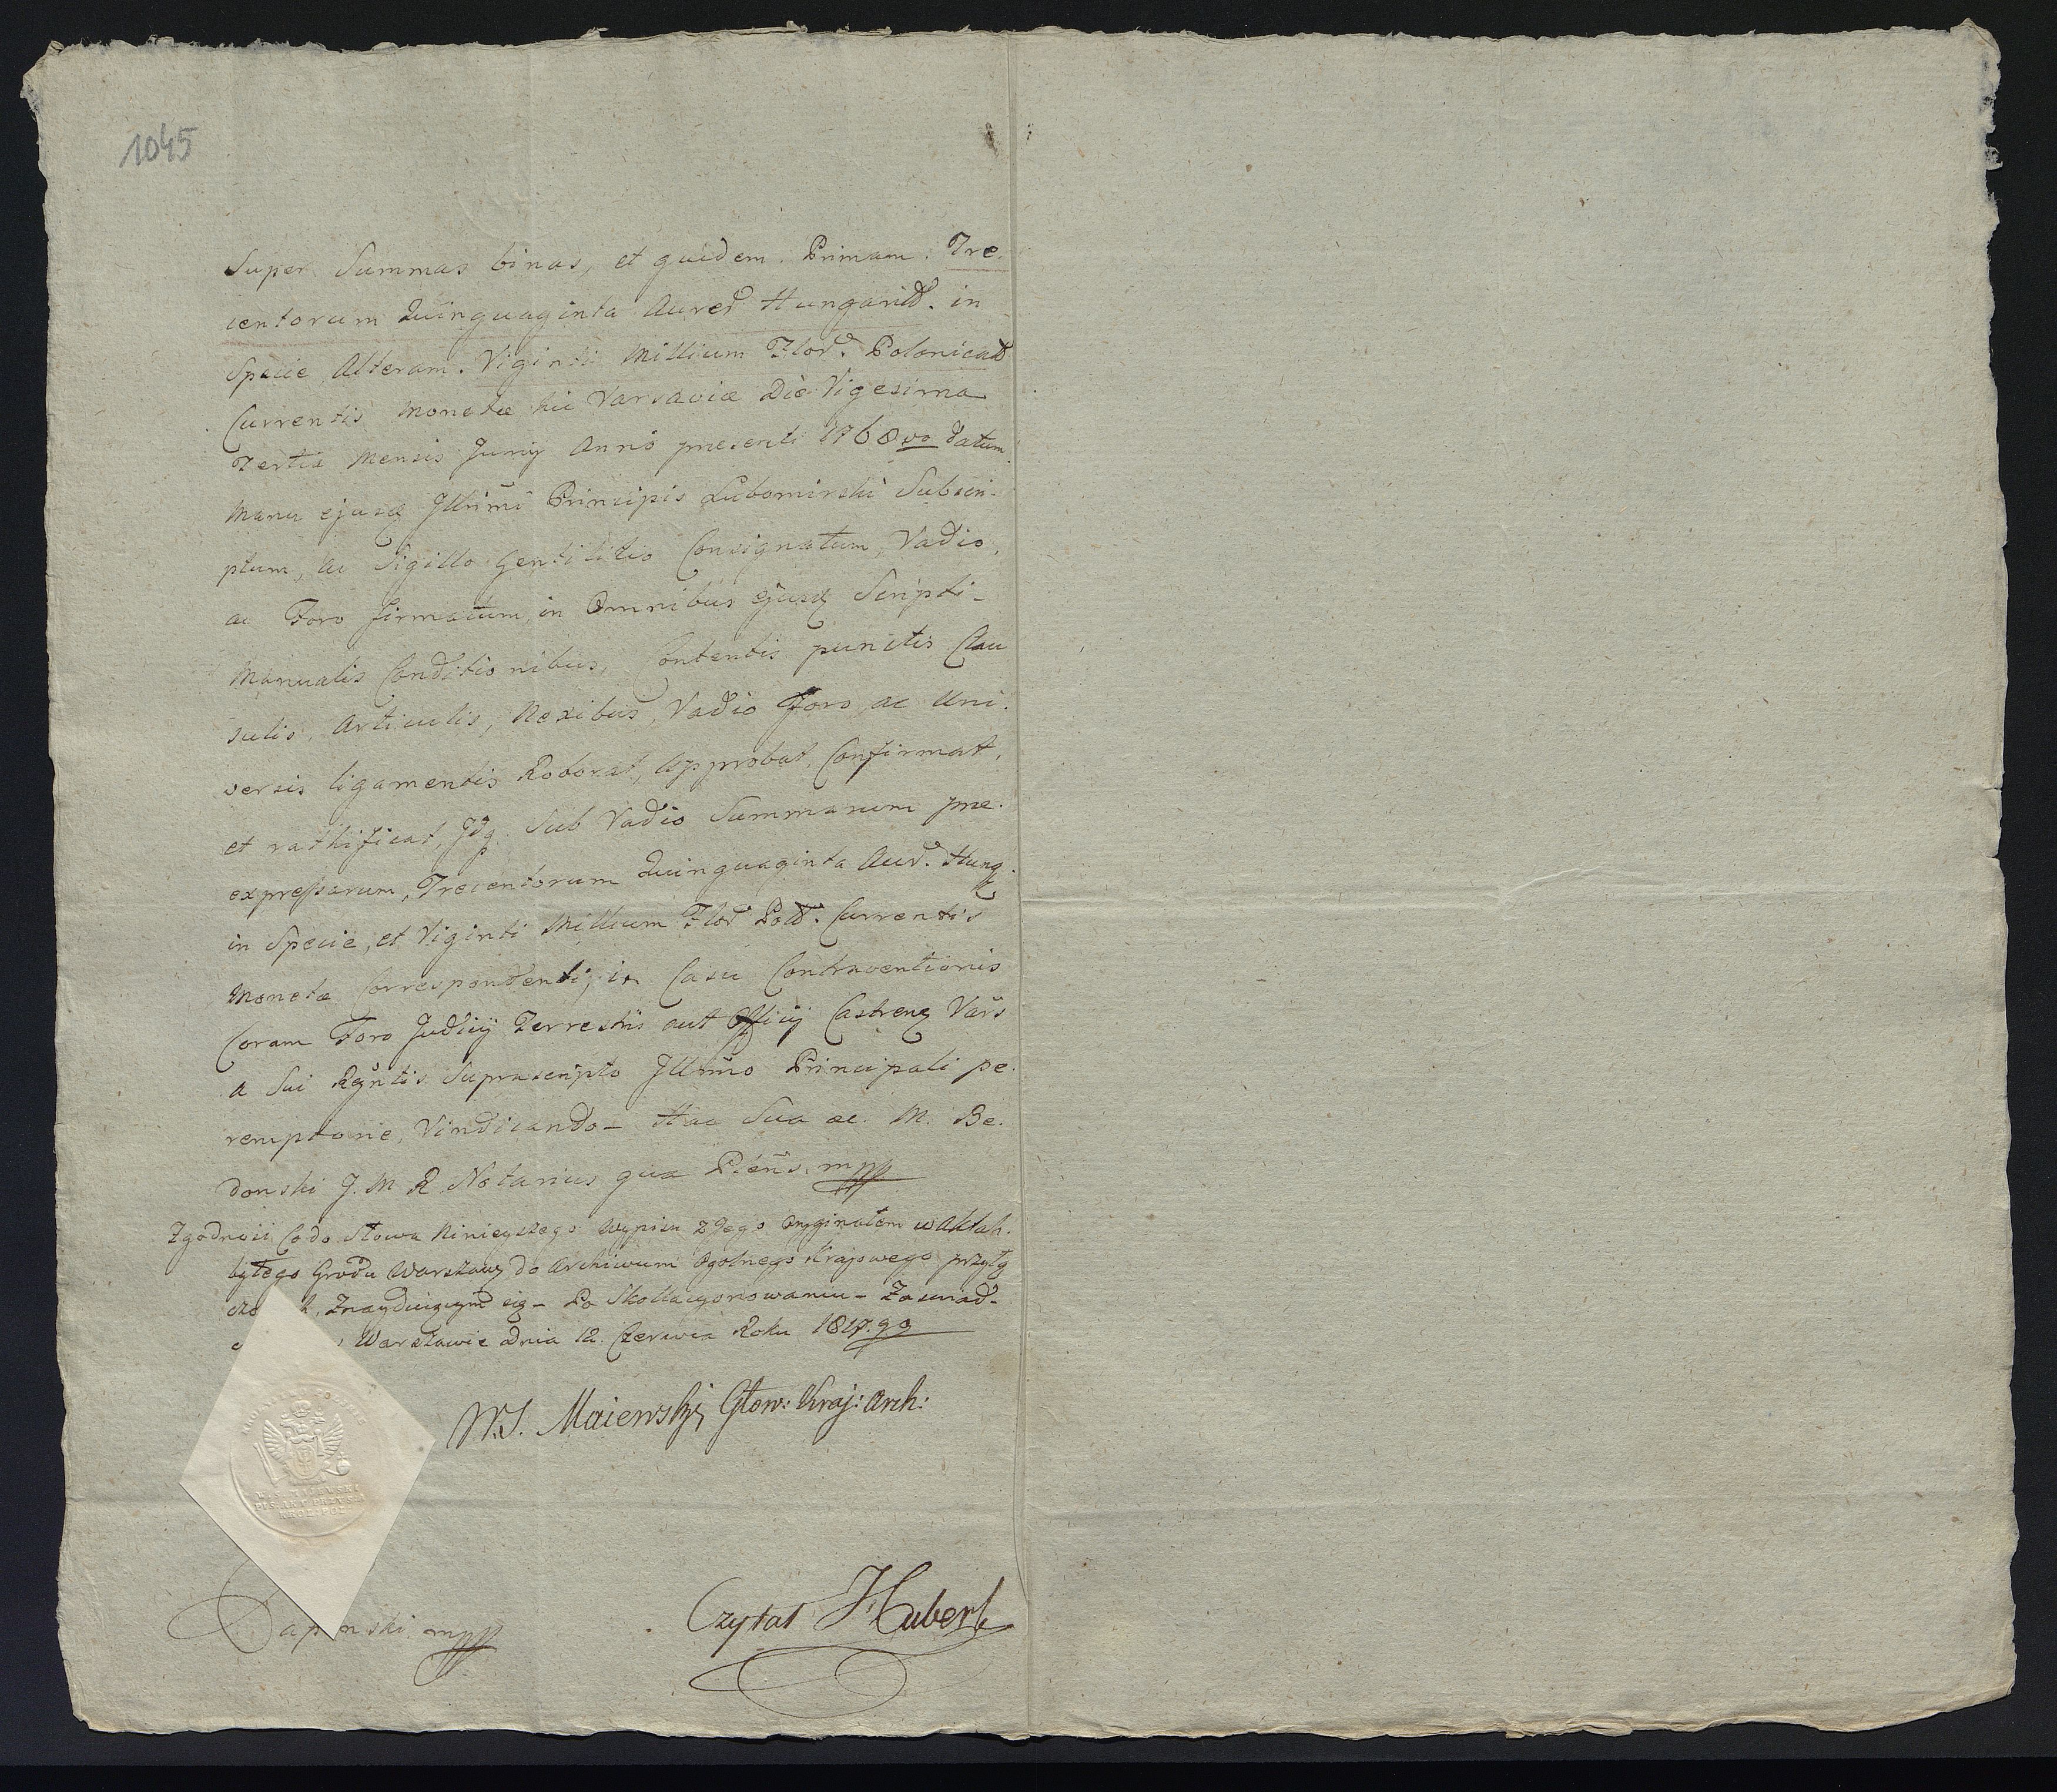 1045
Super Summas binas, et quidem Primam. Tre.
centorum Quinquaginta Aureõ Hungaricõ. in
Specie Alteram. Viginti Millium Floõ. Polonicaõ
Currentis Monetæ hic Varsaviæ Die Vigesima
Tertia Mensis Junij Anno presenti 1768vo datum
Manu ejusq Jllr̃mi Principis Lubomirski Subscri-
ptum, ac Sigillo Gentilitio Consignatum, Vadio,
ac Foro firmatum, in Omnibus ejusq Scripti-
Manualis Conditionibus, Contentis punctis Clau
sulis, Articulis, Nexibus, Vadio Foro, ac Uni.
versis ligamentis Roborat, Approbat, Confirmat,
et rathificat, Jdq. Sub Vadio Summarum pre.
expressarum, Trecentorum Quinquaginta Aurõ. Hung.
in Specie, et Viginti Millium Floõ Polõ. Currentis
Monetæ Correspondenti, in Casu Contraventionis
Coram Foro Judicij Terrestris aut Officij Castrenq Vars
a Sui Rñtis Suprascripto Jllm̃o Principali pe.
remptorie, Vindicando- Hac Sua ac. M. Be.
donski J. M R Notarius qua Pleñs. mpp
Zgodność Co do Słowa Ninieyszego Wypisu z Jego Oryginałem w Aktach.
byłego Grodu Warszaws do Archiwum Ogolnego Krajowego przyłą
Znayduiącym się - Po Skollacyonowaniu - Zaswiad-
Warszawie dnia 12. Czerwca Roku 1817.go
W.S. Maiewski Głow: Kraj: Arch:
KROL. POL.
mpp
Czytał Hubert